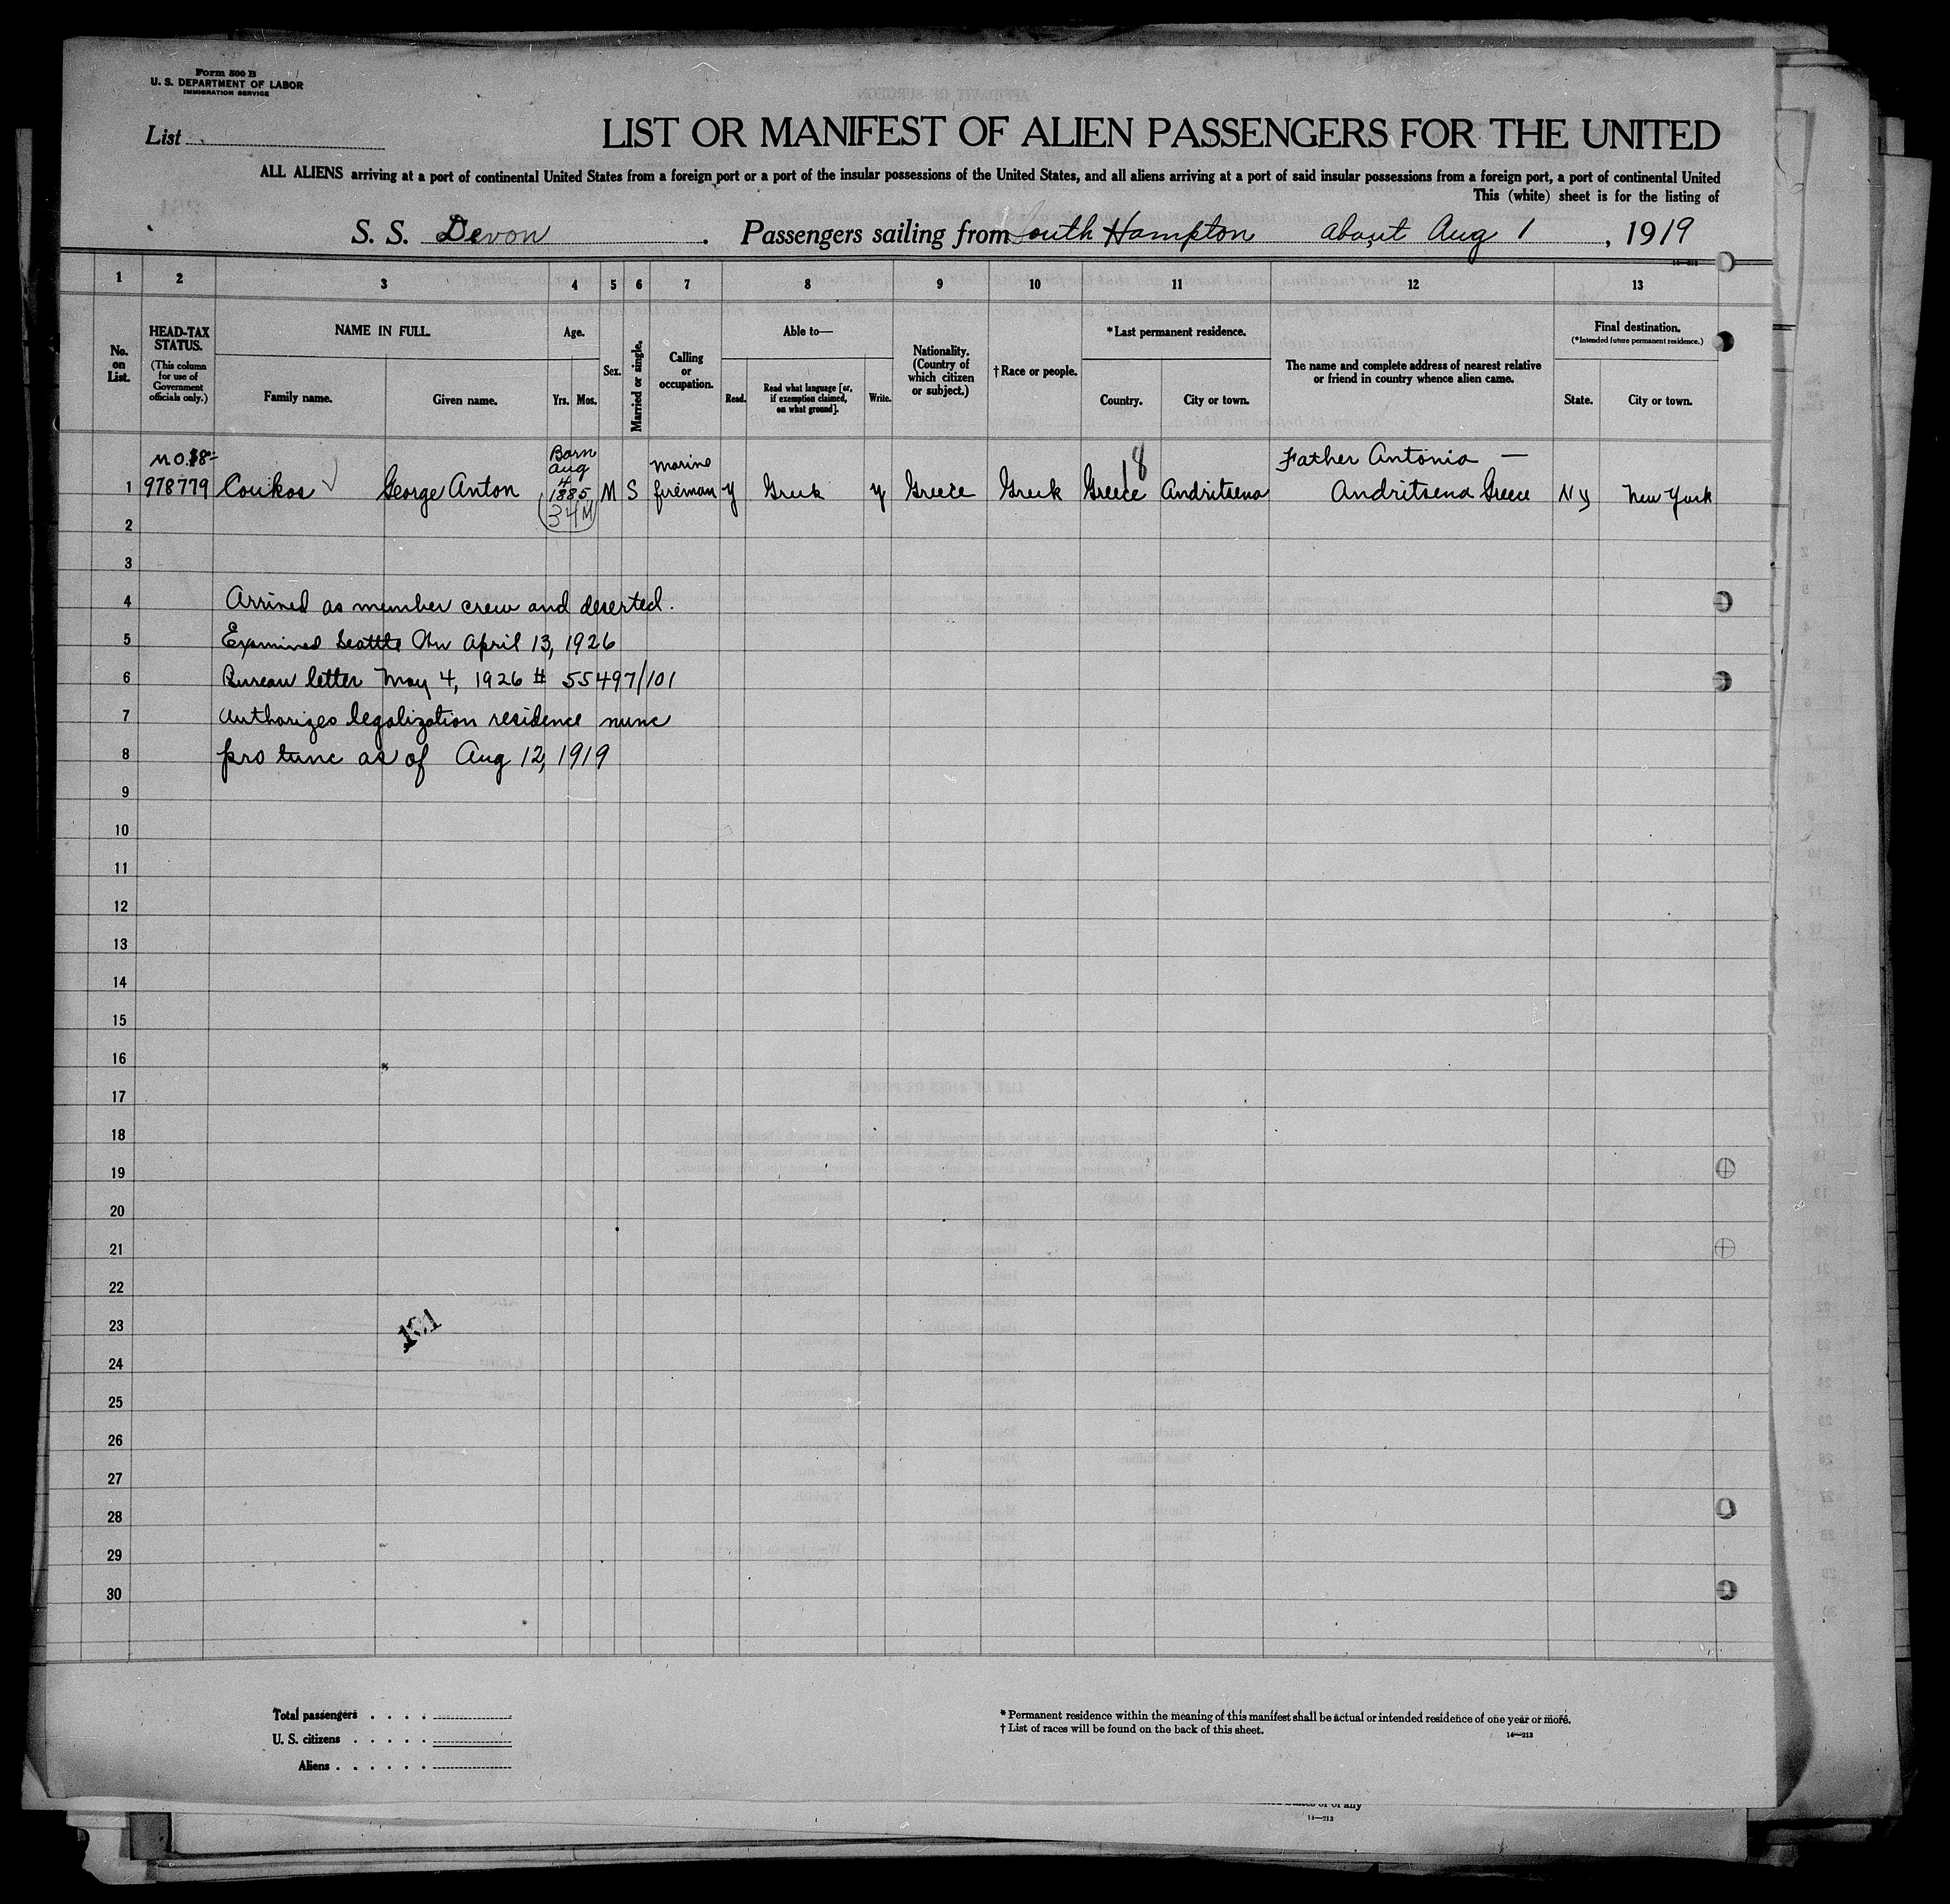 Form 500 B
U. S. DEPARTMENT OF LABOR
IMMIGRATION SERVICE
List
LIST OR MANIFEST OF ALIEN PASSENGERS FOR THE UNITED
ALL ALIENS arriving at a port of continental United States from a foreign port or a port of the insular possessions of the United States, and all aliens arriving at a port of said insular possessions from a foreign port, a port of continental United
This (white) sheet is for the listing of
S. S. Devon. Passengers sailing from South Hampton about Aug 1, 1919
14-213
1 2 3 4 5 6 7 8 9 10 11 12 13
No. on List.
HEAD-TAX STATUS.
(This column for use of Government officials only.)
NAME IN FULL.
Family name. Given name.
Age.
Yrs. Mos.
Sex.
Married or single.
Calling or occupation.
Able to—
Read. Read what language [or, if exemption claimed, on what ground]. Write.
Nationality. (Country of which citizen or subject.)
†Race or people.
*Last permanent residence.
Country. City or town.
The name and complete address of nearest relative or friend in country whence alien came.
Final destination.
(*Intended future permanent residence.)
State. City or town.
M.O. $8=
Born Aug 4
18
Father Antonio —
1 978779 Coukos George Anton 1885 M S marine fireman y Greek y Greece Greek Greece Andritsena Andritsena Greece NY New York
34 M
2
3
4 Arrived as member crew and deserted.
5 Examined Seattle Wn April 13, 1926
6 Bureau letter May 4, 1926 # 55497/101
7 Authorizes legalization residence nunc
8 pro tunc as of Aug 12, 1919
9
10
11
12
13
14
15
16
17
18
19
20
21
22
23
24
25
26
27
28
29
30
Total passengers
U. S. citizens
Aliens
* Permanent residence within the meaning of this manifest shall be actual or intended residence of one year or more.
† List of races will be found on the back of this sheet.
14-213
14-213